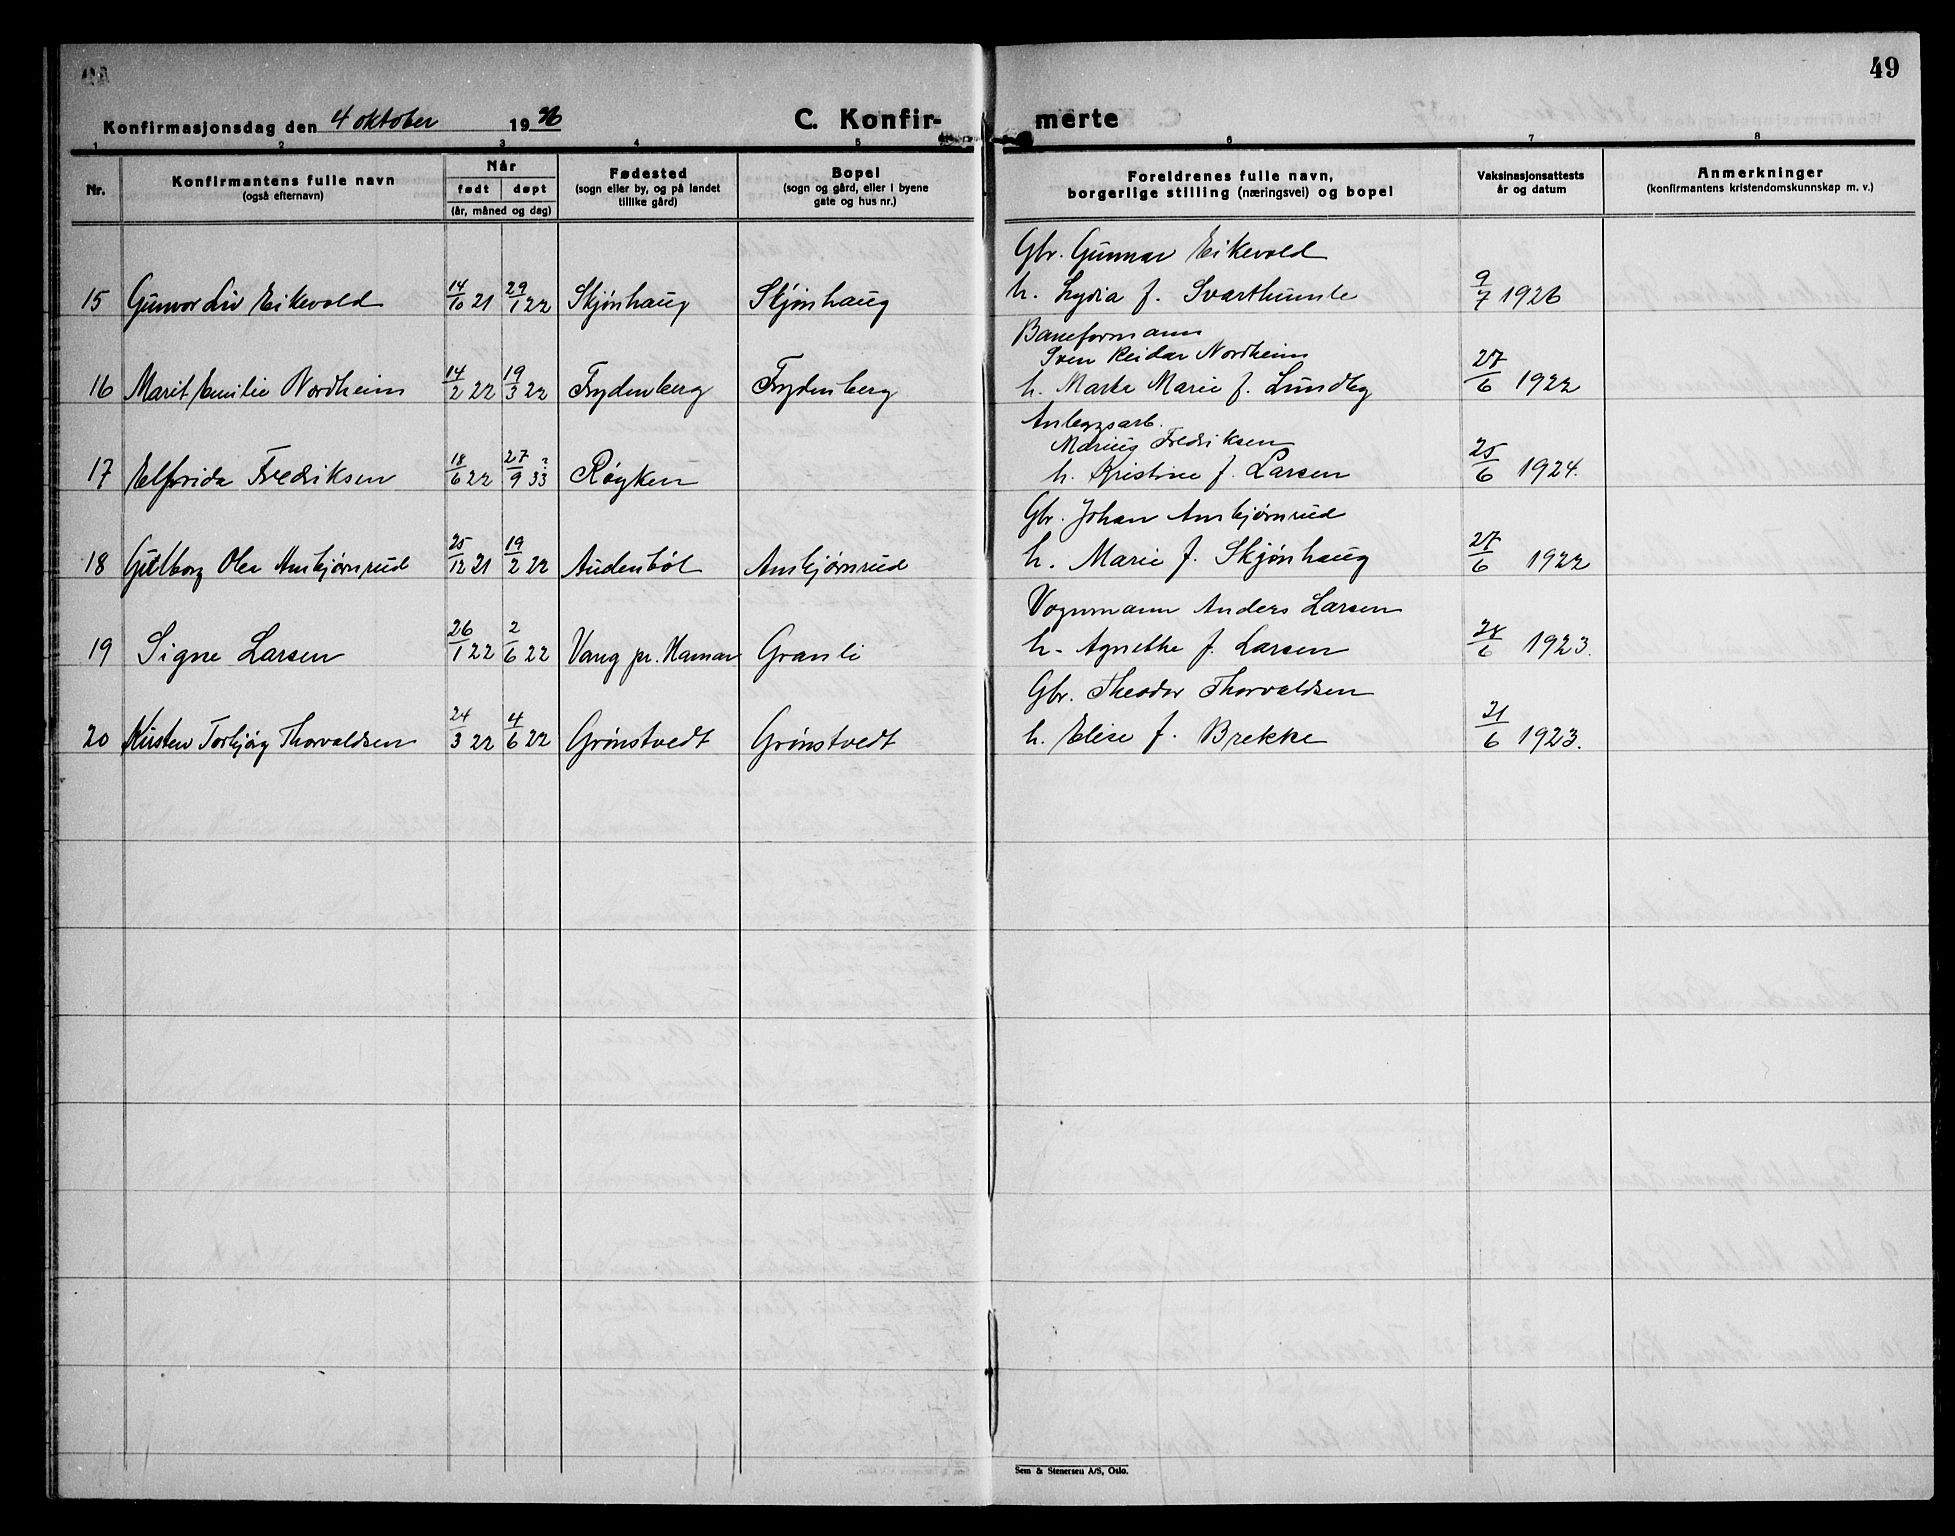 49
Konfirmasjonsdag den 4 oktober 1936
C. Konfirmerte
1 2 3 4 5 6 7 8
Nr.
Konfirmantens fulle navn
(også efternavn)
Når
født døpt
(år, måned og dag)
Fødested
(sogn eller by, og på landet
tillike gård)
Bopel
(sogn og gård, eller i byene
gate og hus nr.)
Foreldrenes fulle navn,
borgerlige stilling (næringsvei) og bopel
Vaksinasjonsattests
år og datum
Anmerkninger
(konfirmantens kristendomskunnskap m. v.)
Gbr. Gunnar Eikevold
15 Gunvor Liv Eikevold 14/10 21 29/1 22 Skjønhaug Skjønhaug h. Lydia f. Svarthumle 9/7 1926
Baneformann
Sven Reidar Nordheim
16 Marit Emilie Nordheim 14/2 22 19/3 22 Frydenberg Frydenberg h. Marte Marie f. Lundby 27/6 1922
Anleggsarb.
Marius Fredriksen
17 Elfrida Fredriksen 18/6 22 27/9 33? Røyken h. Kristine f. Larsen 25/6 1924.
Gbr. Johan Ambjørnrud
18 Gudborg Olea Ambjørnrud 25/12 21 19/2 22 Audenbøl Ambjørnrud h. Marie f. Skjønhaug 27/6 1922
Vognmann Anders Larsen
19 Signe Larsen 26/1 22 2/6 22 Vang pr. Hamar Granli h. Agnethe f. Larsen 28/6 1923.
Gbr. Theodor Thorvaldsen
20 Kirsten Torbjørg Thorvaldsen 24/3 22 4/6 22 Grønstvedt Grønstvedt h. Elise f. Brekke 21/6 1923.
Sem & Stenersen A/S, Oslo.